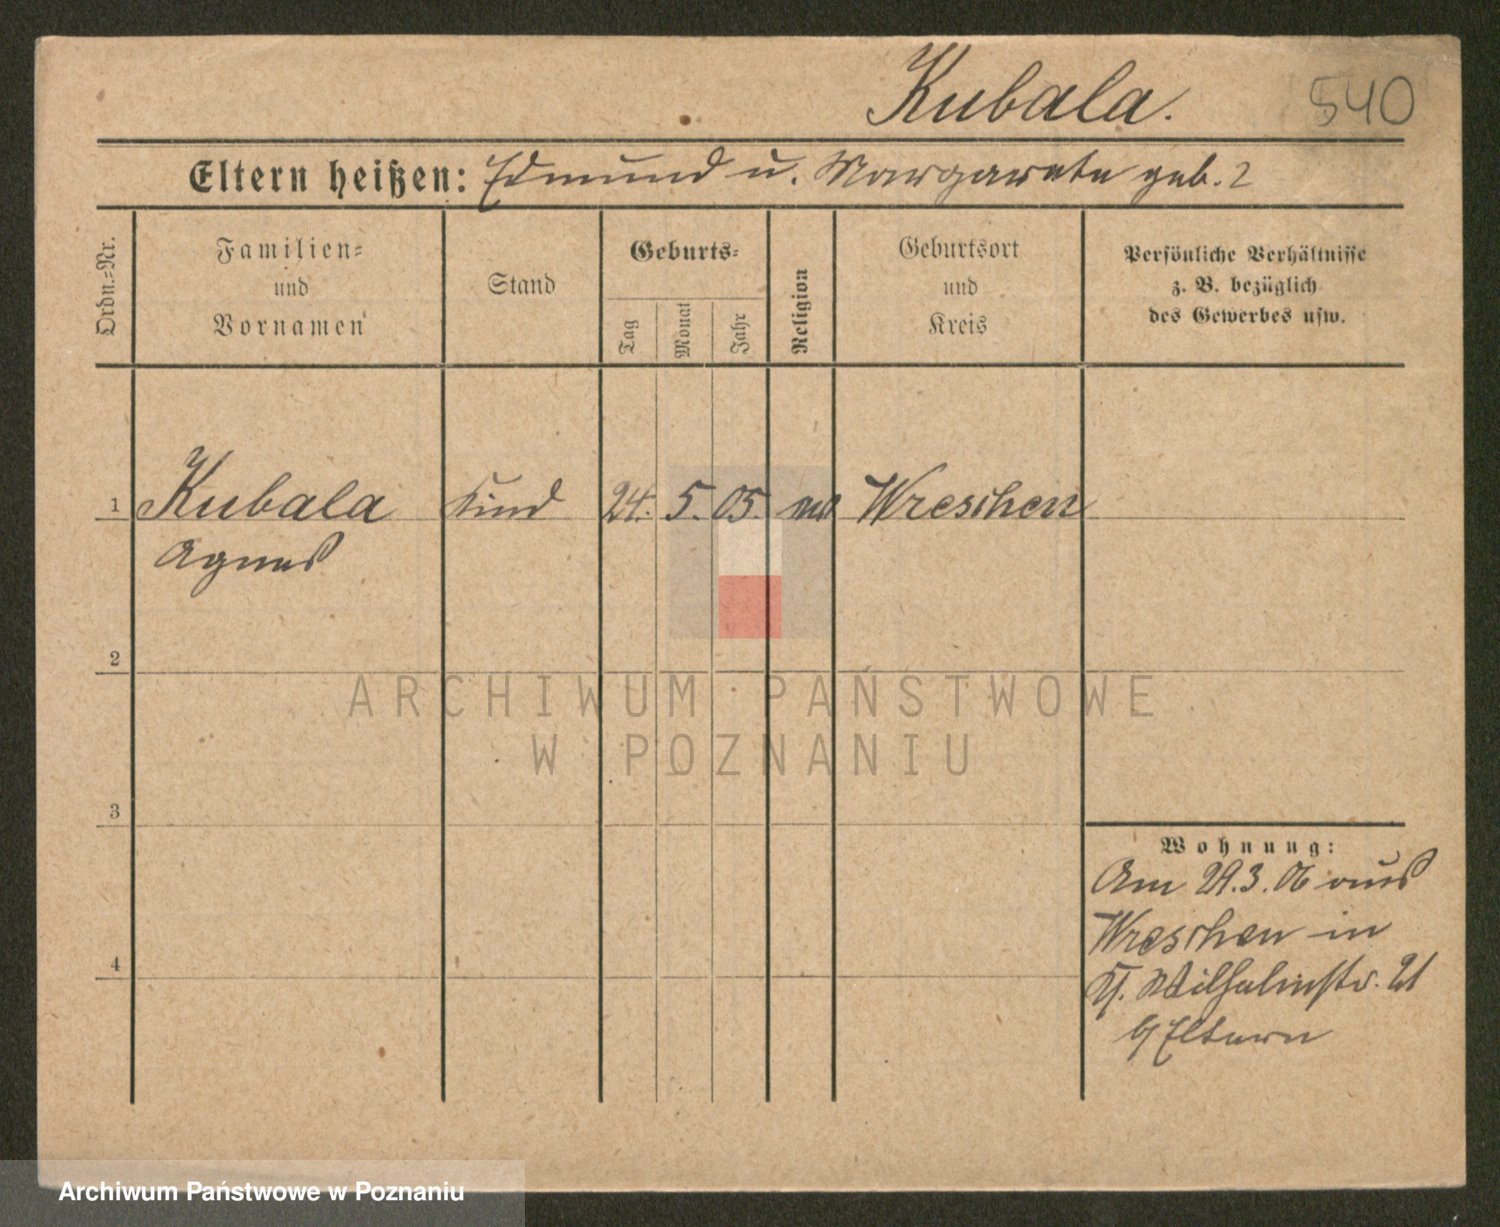 Kubala. 540
Eltern heißen: Edmund u. Margarete geb. ?
Ordn.-Nr.
Familien-
und
Vornamen
Stand
Geburts-
Tag
Monat
Jahr
Religion
Geburtsort
und
Kreis
Persönliche Verhältnisse
z. B. bezüglich
des Gewerbes usw.
1 Kubala Kind 24. 5. 05. Wreschen
Agnes
2
ARCHIWUM PAŃSTWOWE
W POZNANIU
3
Wohnung:
Am 29.3.06 aus
Wreschen in
Wilhelmstr. 21
b/ Eltern
4
Archiwum Państwowe w Poznaniu